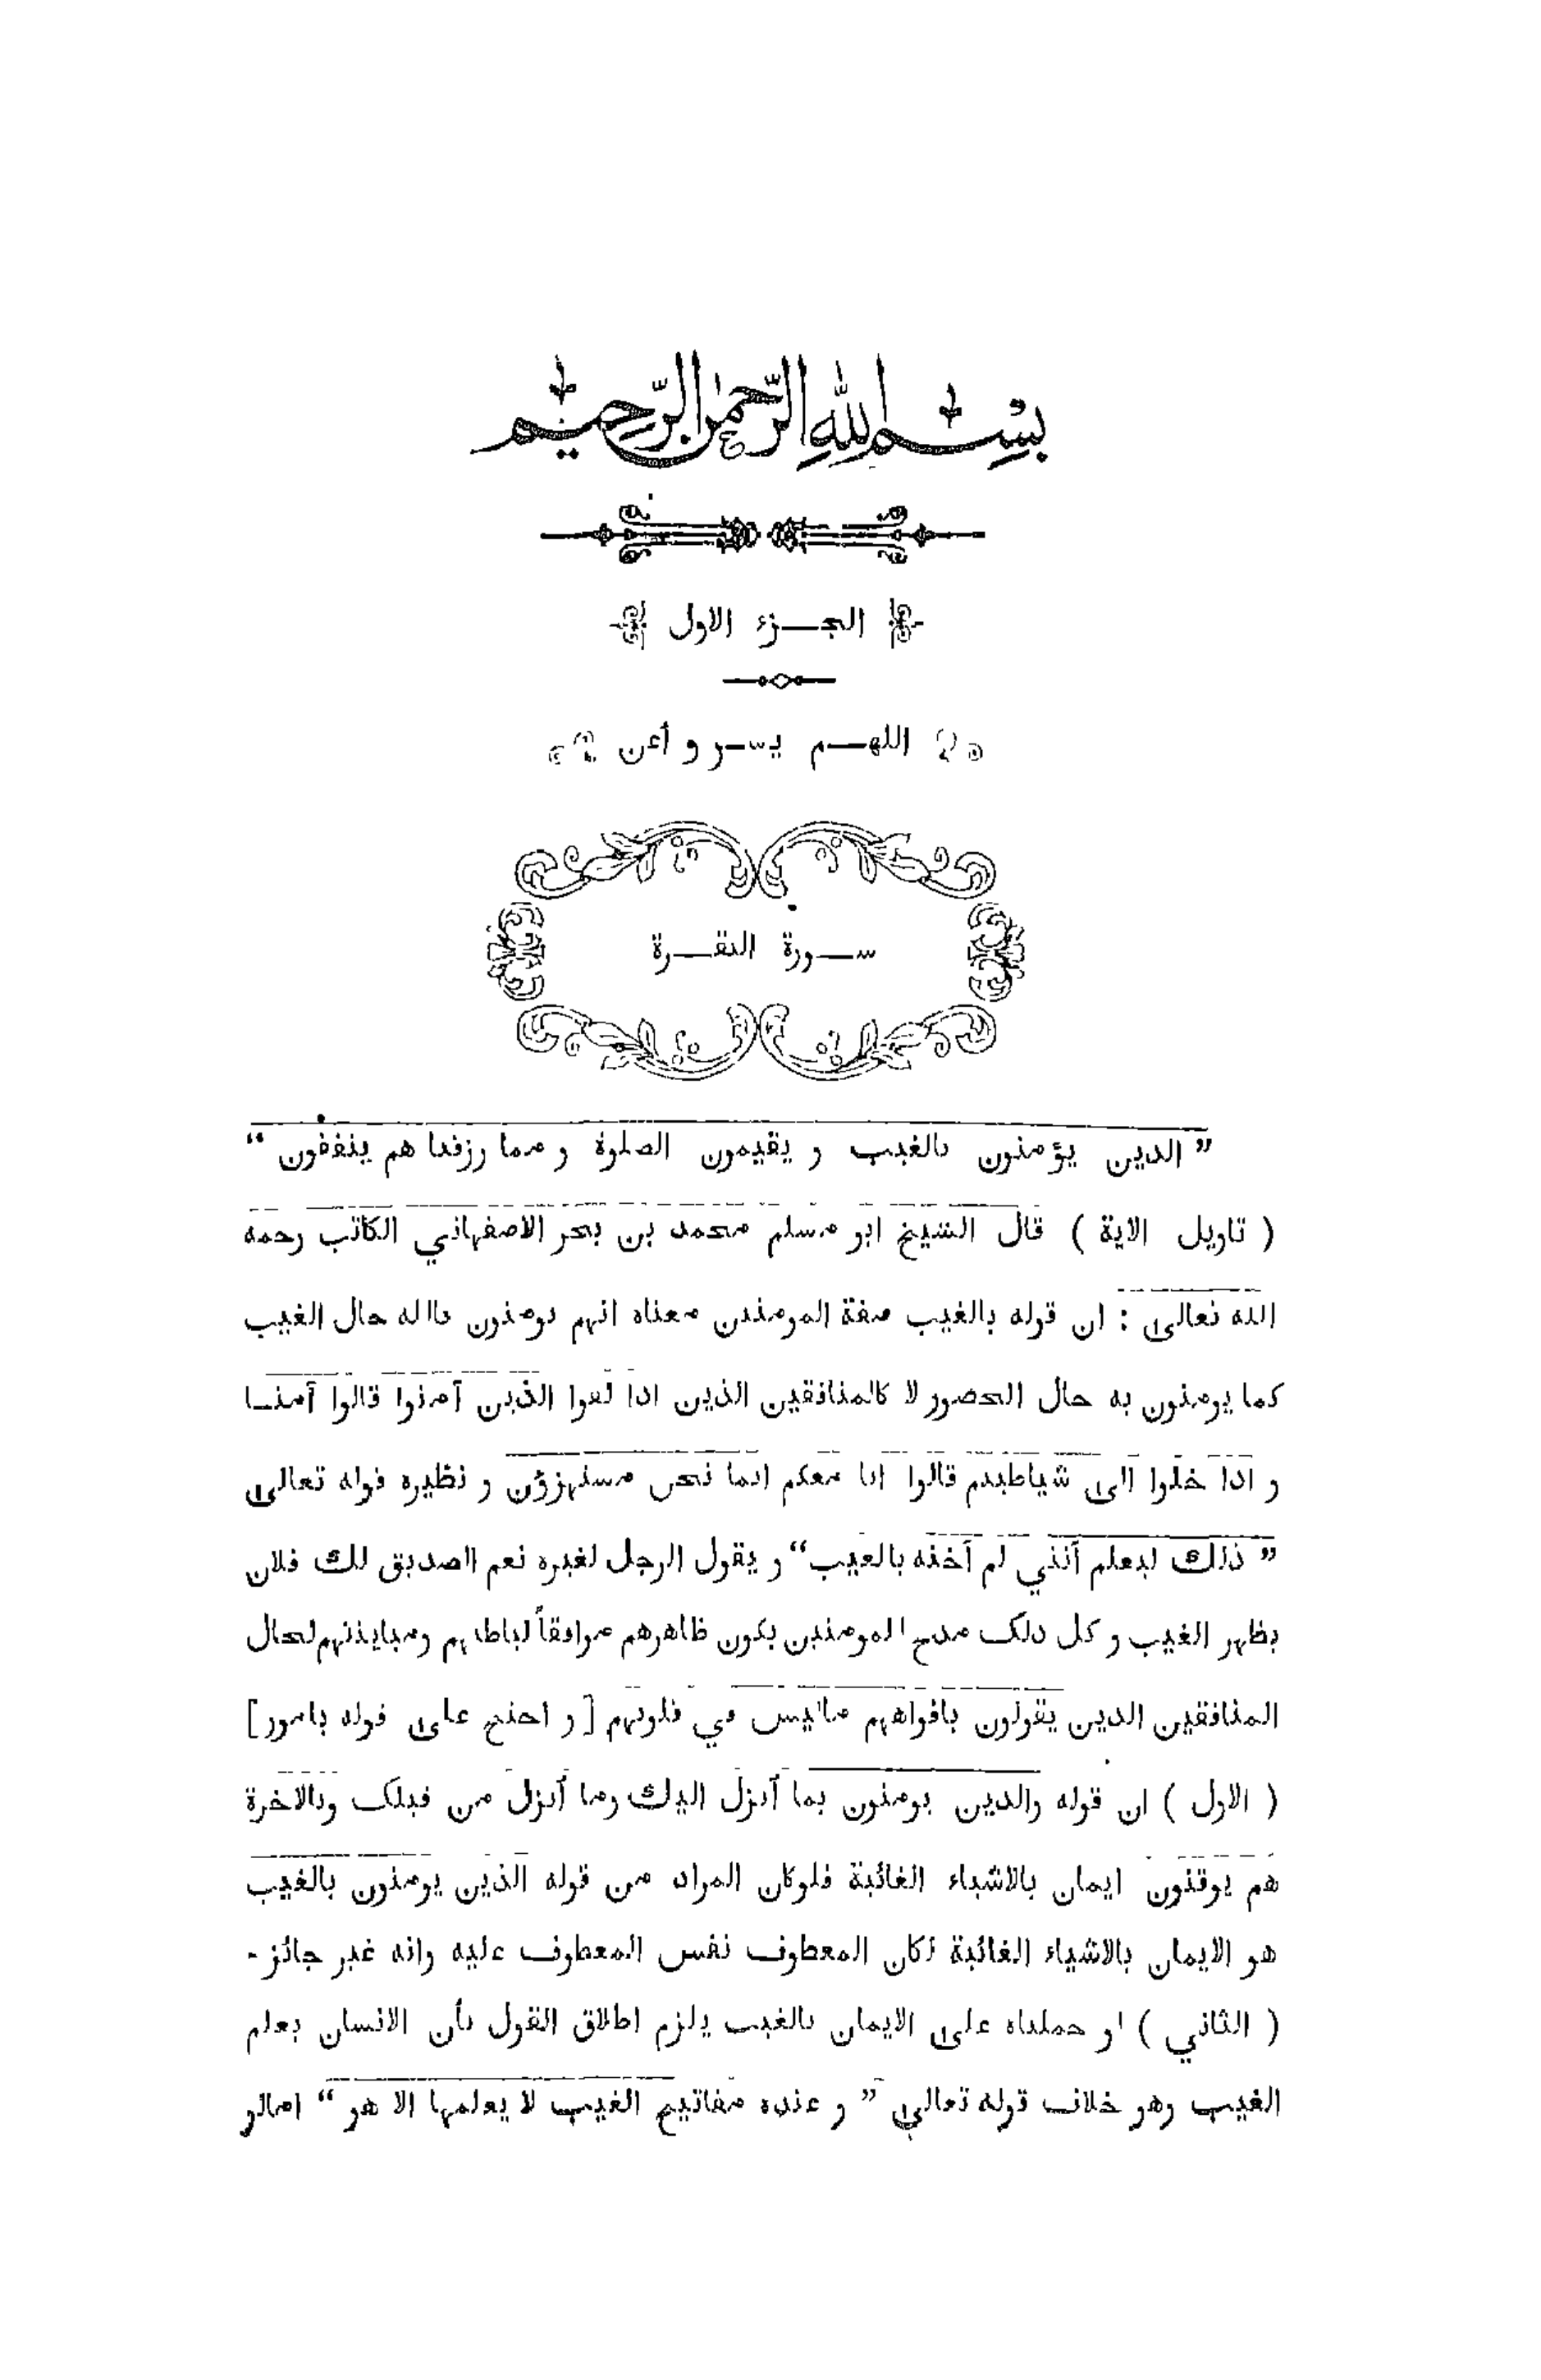 بسم الله الرحمن الرحيم
الجزء الاول
اللهم يسر و أعن
سورة البقرة
” الذين يؤمنون بالغيب و يقيمون الصلوة و مما رزقنا هم ينفقون “
( تاويل الاية ) قال الشيخ ابو مسلم محمد بن بحر الاصفهاني الكاتب رحمه
الله تعالى : ان قوله بالغيب صفة المومنين معناه انهم يومنون بالله حال الغيب
كما يومنون به حال الحضور لا كالمنافقين الذين اذا لقوا الذين آمنوا قالوا آمنا
و اذا خلوا الى شياطينهم قالوا انا معكم انما نحن مستهزؤن و نظيره قوله تعالى
” ذلك ليعلم أنني لم أخنه بالغيب“ و يقول الرجل لغيره نعم الصديق لك فلان
بظهر الغيب و كل ذلك مدح المومنين بكون ظاهرهم موافقاً لباطنهم ومباينتهم لحال
المنافقين الذين يقولون بافواههم ماليس في قلوبهم [ و احتج على قوله بامور]
( الاول ) ان قوله والذين يومنون بما أنزل اليك وما أنزل من قبلك وبالاخرة
هم يوقنون ايمان بالاشياء الغائبة فلوكان المراد من قوله الذين يومنون بالغيب
هو الايمان بالاشياء الغائبة لكان المعطوف نفس المعطوف عليه وانه غير جائز -
( الثاني ) لو حملناه على الايمان بالغيب يلزم اطلاق القول بأن الانسان يعلم
الغيب وهو خلاف قوله تعالى ” و عنده مفاتيح الغيب لا يعلمها الا هو “ امالو